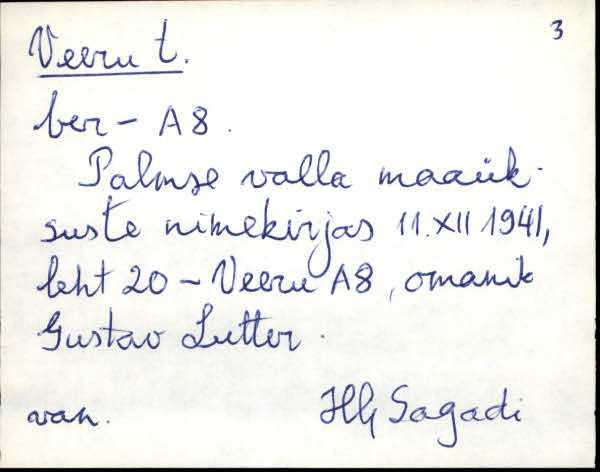 3
Veeru t.
ber - A8.
Palmse valla maaük-
suste nimekirjas 11.XII 1941,
leht 20 - Veeru A8, omanik
Gustav Lutter.
van. HljSagadi